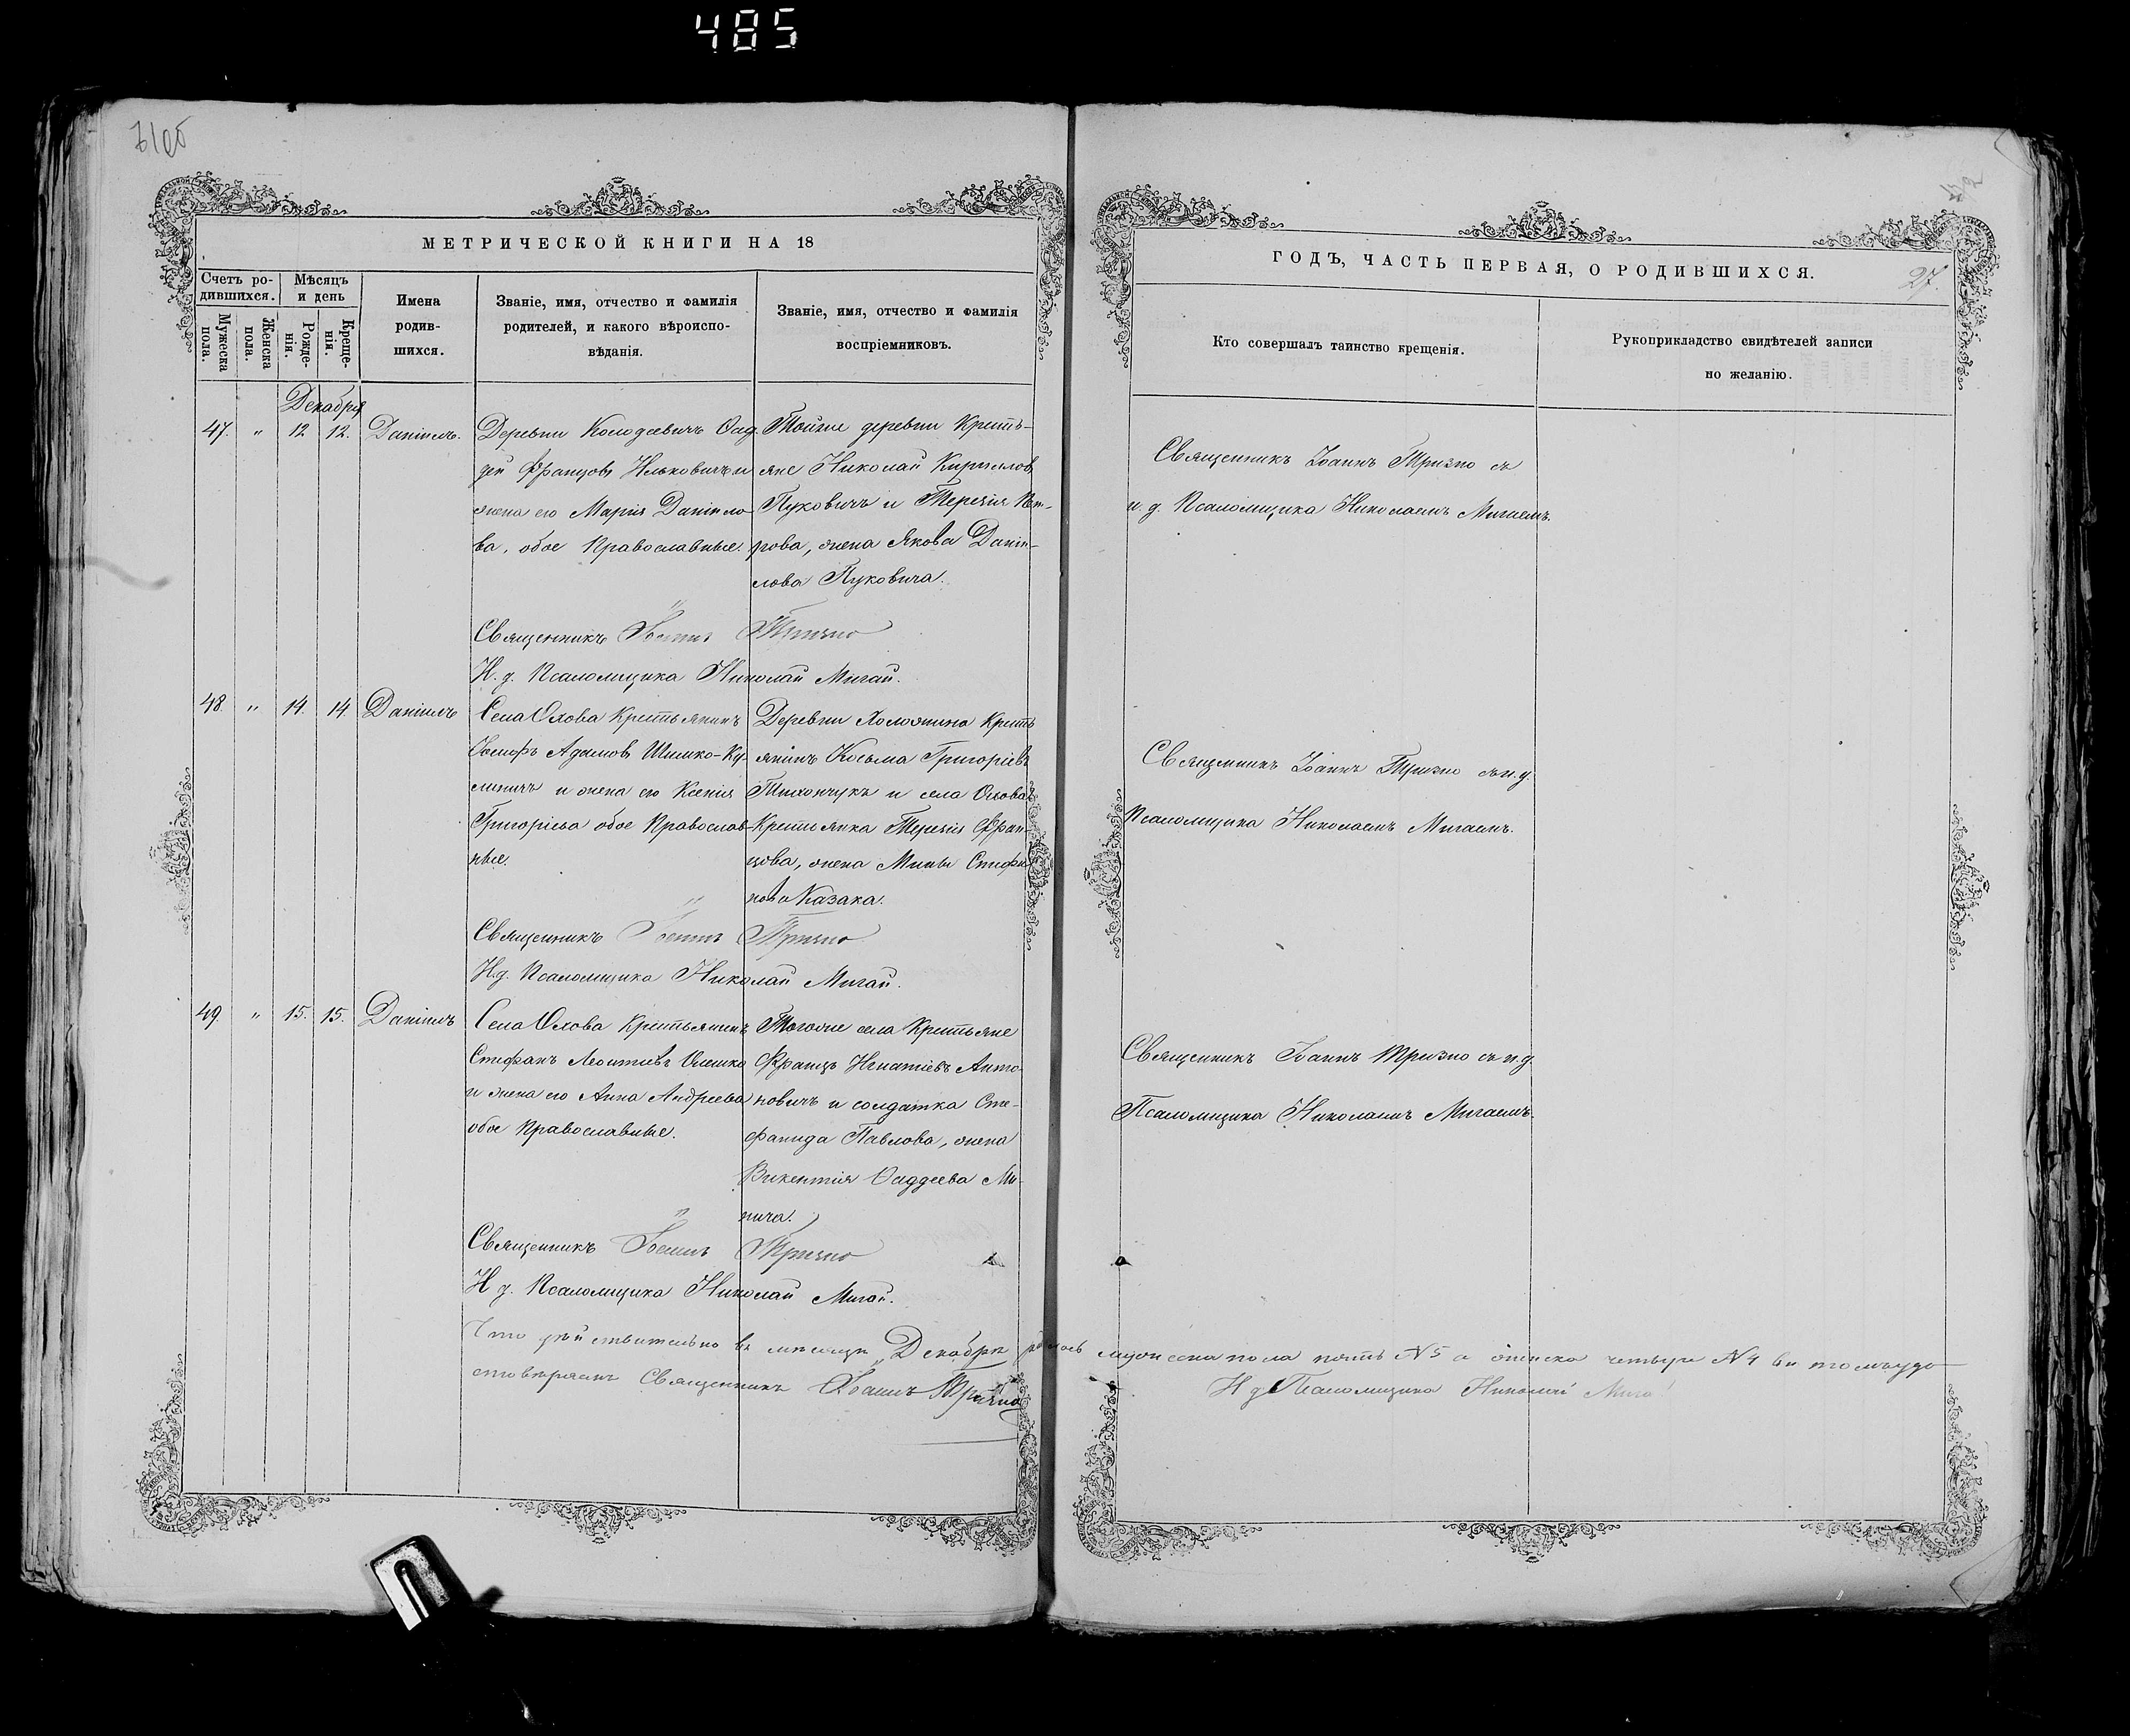 485
МЕТРИЧЕСКОЙ КНИГИ НА 18
Счетъ ро-
дившихся.
Мѣсяцъ
и день
Мужеска
пола.
Женска
пола.
Рожде-
нія.
Креще-
нія.
Имена
родив-
шихся.
Званіе, имя, отчество и фамилія
родителей, и какого вѣроиспо-
вѣданія.
Званіе, имя, отчество и фамилія
воспріемниковъ.
Декабря
47. " 12 12. Даніилъ.
Деревни Колодѣевичъ Ѳад-
дей Францовъ Ильковичъ и
жена его Марія Даніило-
ва, обое Православные.
Тойже деревни Крестъ-
яне Николай Кирилловъ
Пуковичъ и Терезія Пет-
рова, жена Якова Даніи-
лова Пуковича.
Священникъ Іоаннъ Тризно
И. д. Псаломщика Николай Мигай.
48. " 14. 14. Даніилъ
Села Охова Крестьянинъ
Іосифъ Адамовъ Шимко-Ку-
и жена его Ксенія
Григорьева обое Православ-
ные.
Деревни Холожина Кресть
янинъ Косьма Григоріевъ
Тихончукъ и села Охова
Крестьянка Терезія Фран-
цова, жена Мины Стефа
нова Казака.
Священникъ Іоаннъ Тризно
И. д. Псаломщика Николай Мигай.
49. " 15. 15. Даніилъ
Села Охова Крестьянинъ
Стефанъ Леонтіевъ Олешко
и жена его Анна Андреева
обое Православные.
Тогоже села Крестьяне
Францъ Игнатіевъ Анто-
новичъ и солдатка Сте-
фанида Павлова, жена
Викентія Ѳаддеева Ми-
нича.
Священникъ Іоаннъ Тризно
И. д. Псаломщика Николай Мигай.
Что дѣйствительно въ мѣсяцѣ Декабрѣ
мужеска пола пять №5 а женска четыре №4 въ томъ удо-
стовѣряемъ Священникъ Іоаннъ Тризно
И д Псаломщика Николай Мигай
ГОДЪ, ЧАСТЬ ПЕРВАЯ, О РОДИВШИХСЯ.
27.
Кто совершалъ таинство крещенія.
Рукоприкладство свидѣтелей записи
по желанію.
Священникъ Іоаннъ Тризно съ
и. д. Псаломщика Николаемъ Мигаемъ.
Священникъ Іоаннъ Тризно съ и. д.
Псаломщика Николаемъ Мигаемъ.
Священникъ Іоаннъ Тризно съ и. д.
Псаломщика Николаемъ Мигаемъ.